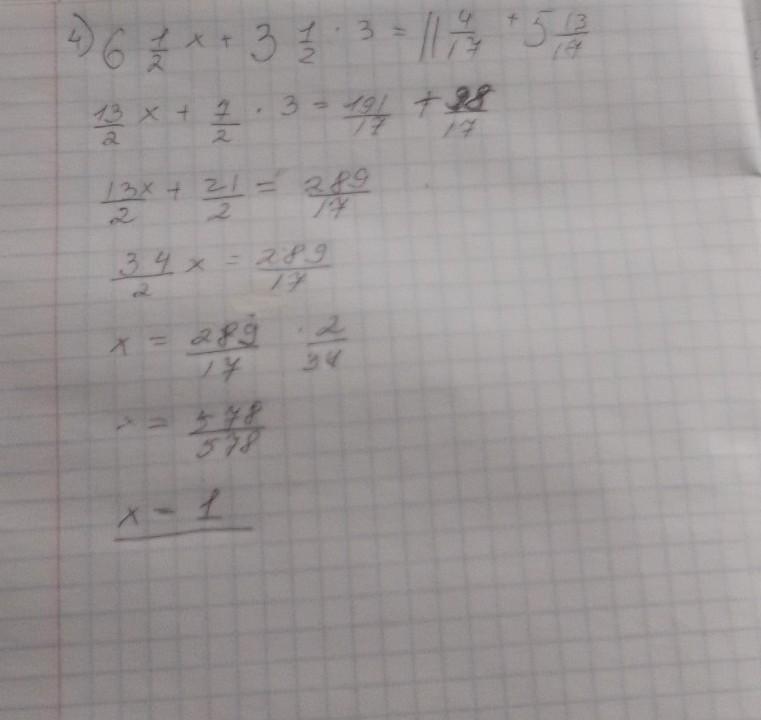 4) 6 1/2 x + 3 1/2 · 3 = 11 4/17 + 5 13/17
13/2 x + 7/2 · 3 = 191/17 + 98/17
13x/2 + 21/2 = 289/17
34/2 x = 289/17
x = 289/17 · 2/34
x = 578/578
x - 1